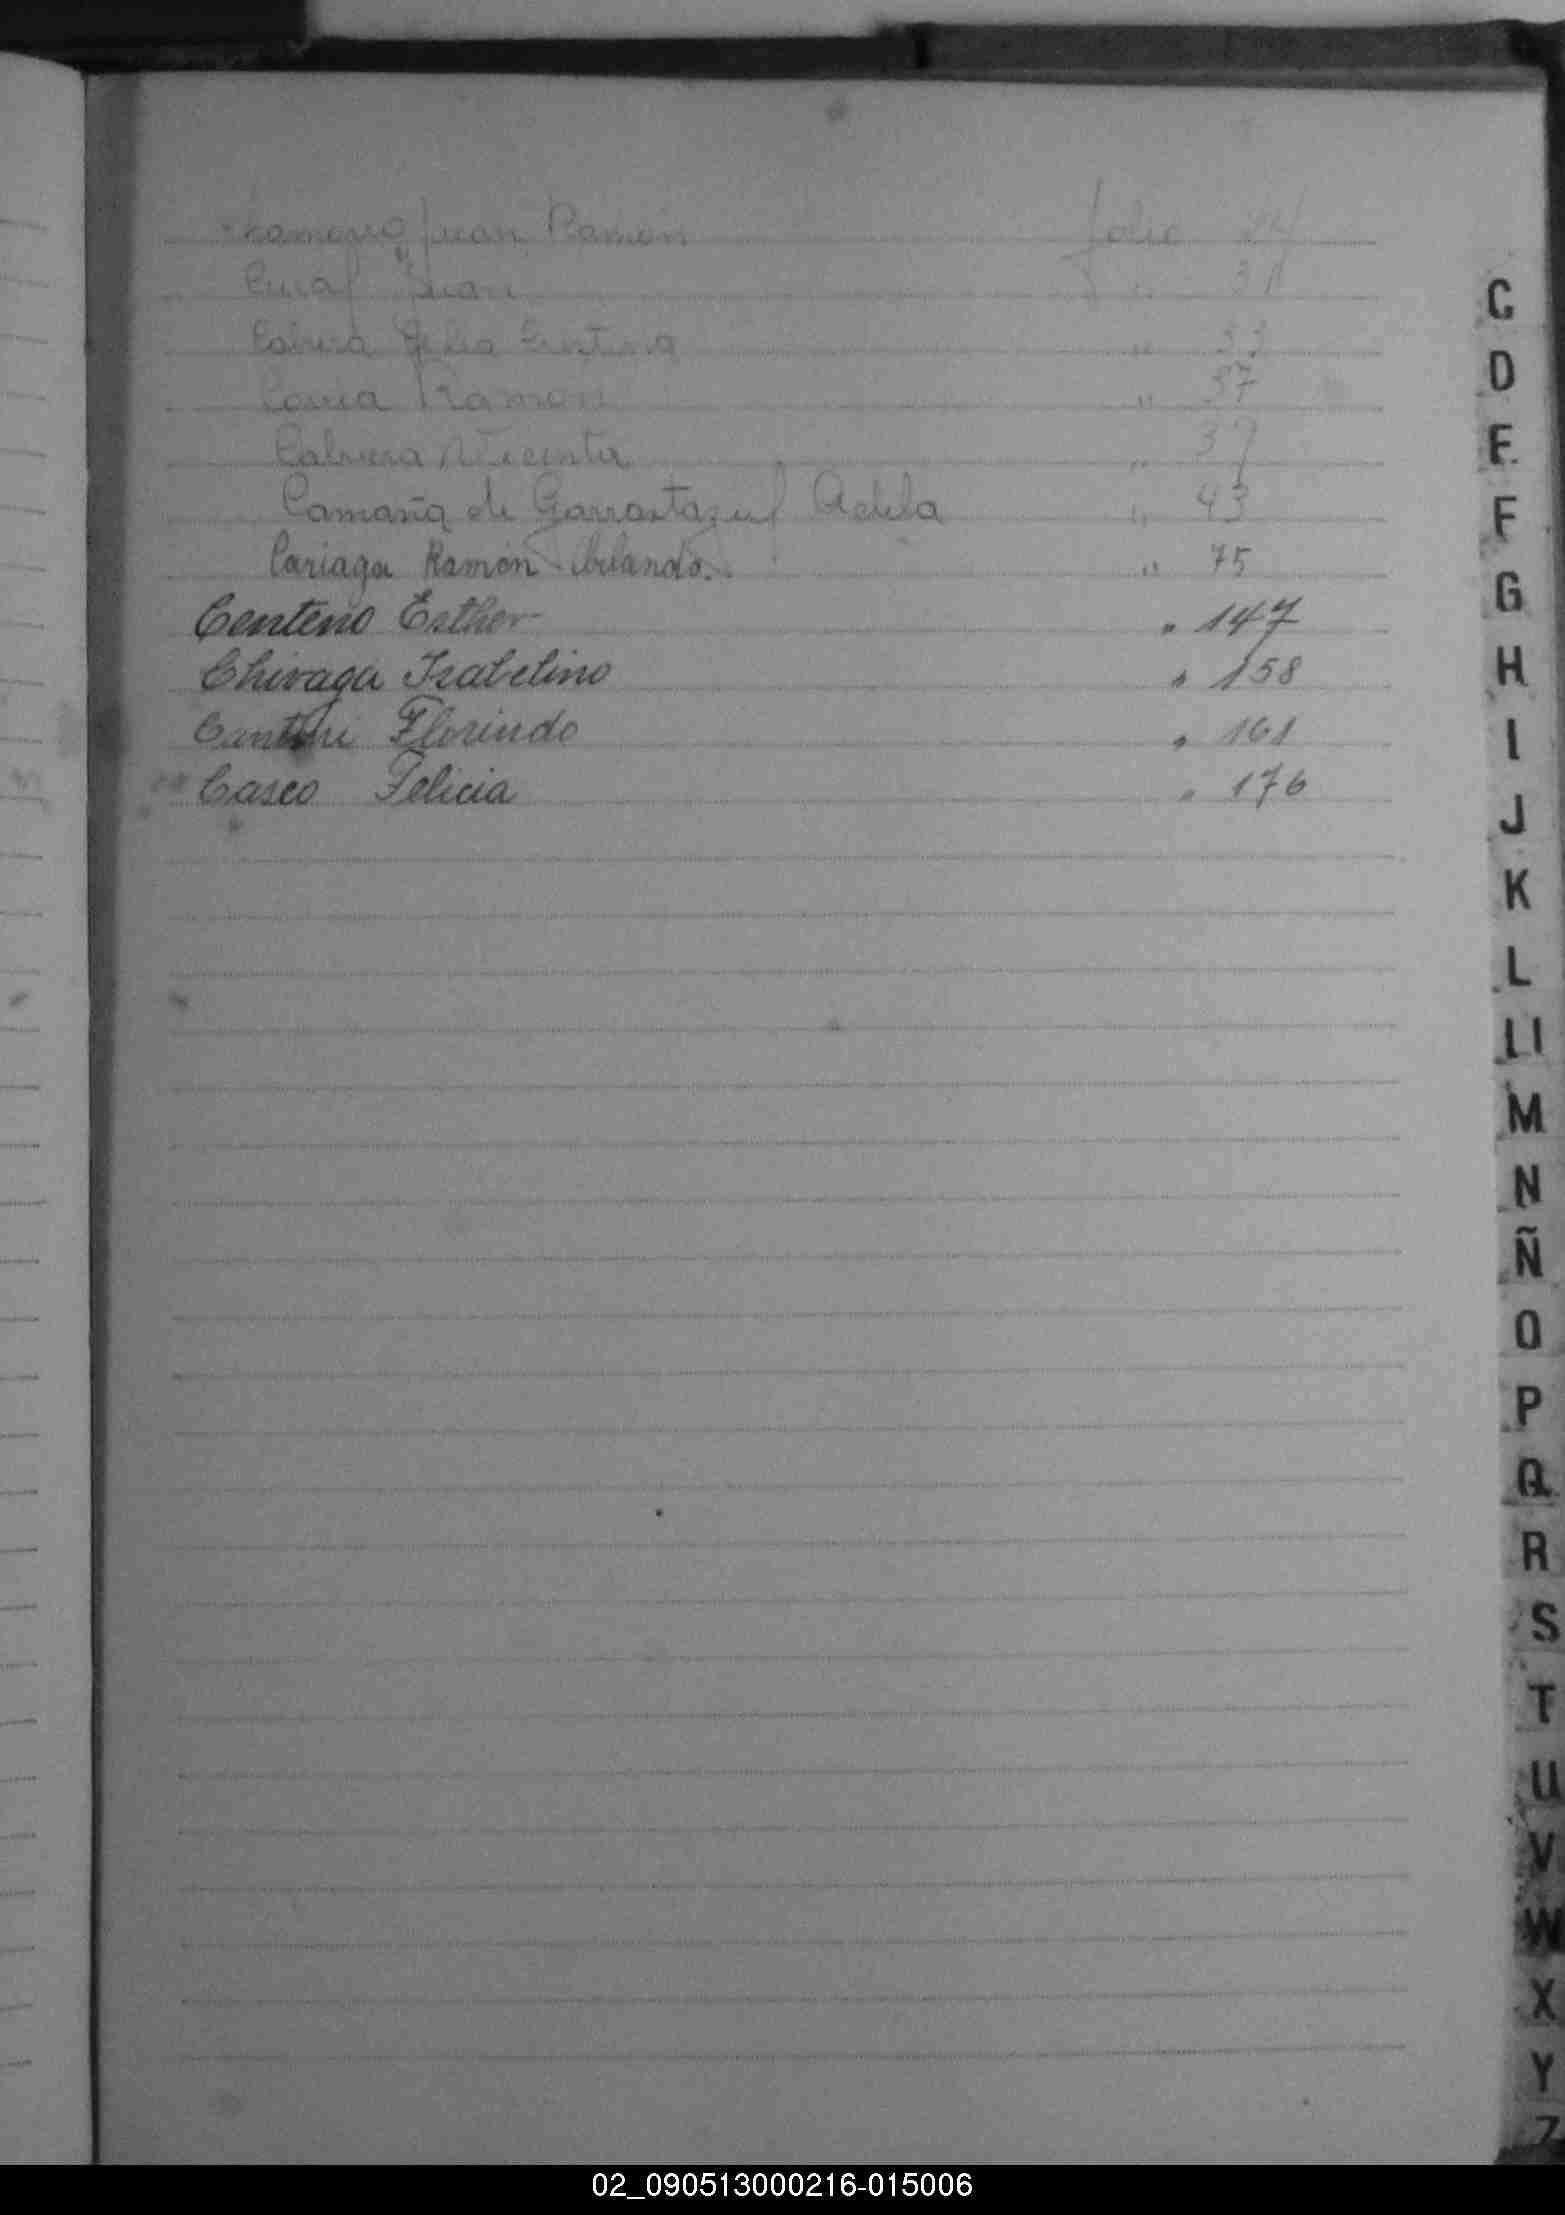 Juan Ramón folio 24
Juan " 31
Cabrera Delia " 33
Ramón " 37
Cabrera Vicenta " 39
Camaña de Garrastazu Adela " 43
Cariaga Ramón Orlando. " 75
Centeno Esther " 147
Chivaga Isabelino " 158
Florindo " 161
Casco Felicia " 176
C
D
E
F
G
H
I
J
K
L
Ll
M
N
Ñ
O
P
Q
R
S
T
U
V
W
X
Y
Z
02_090513000216-015006